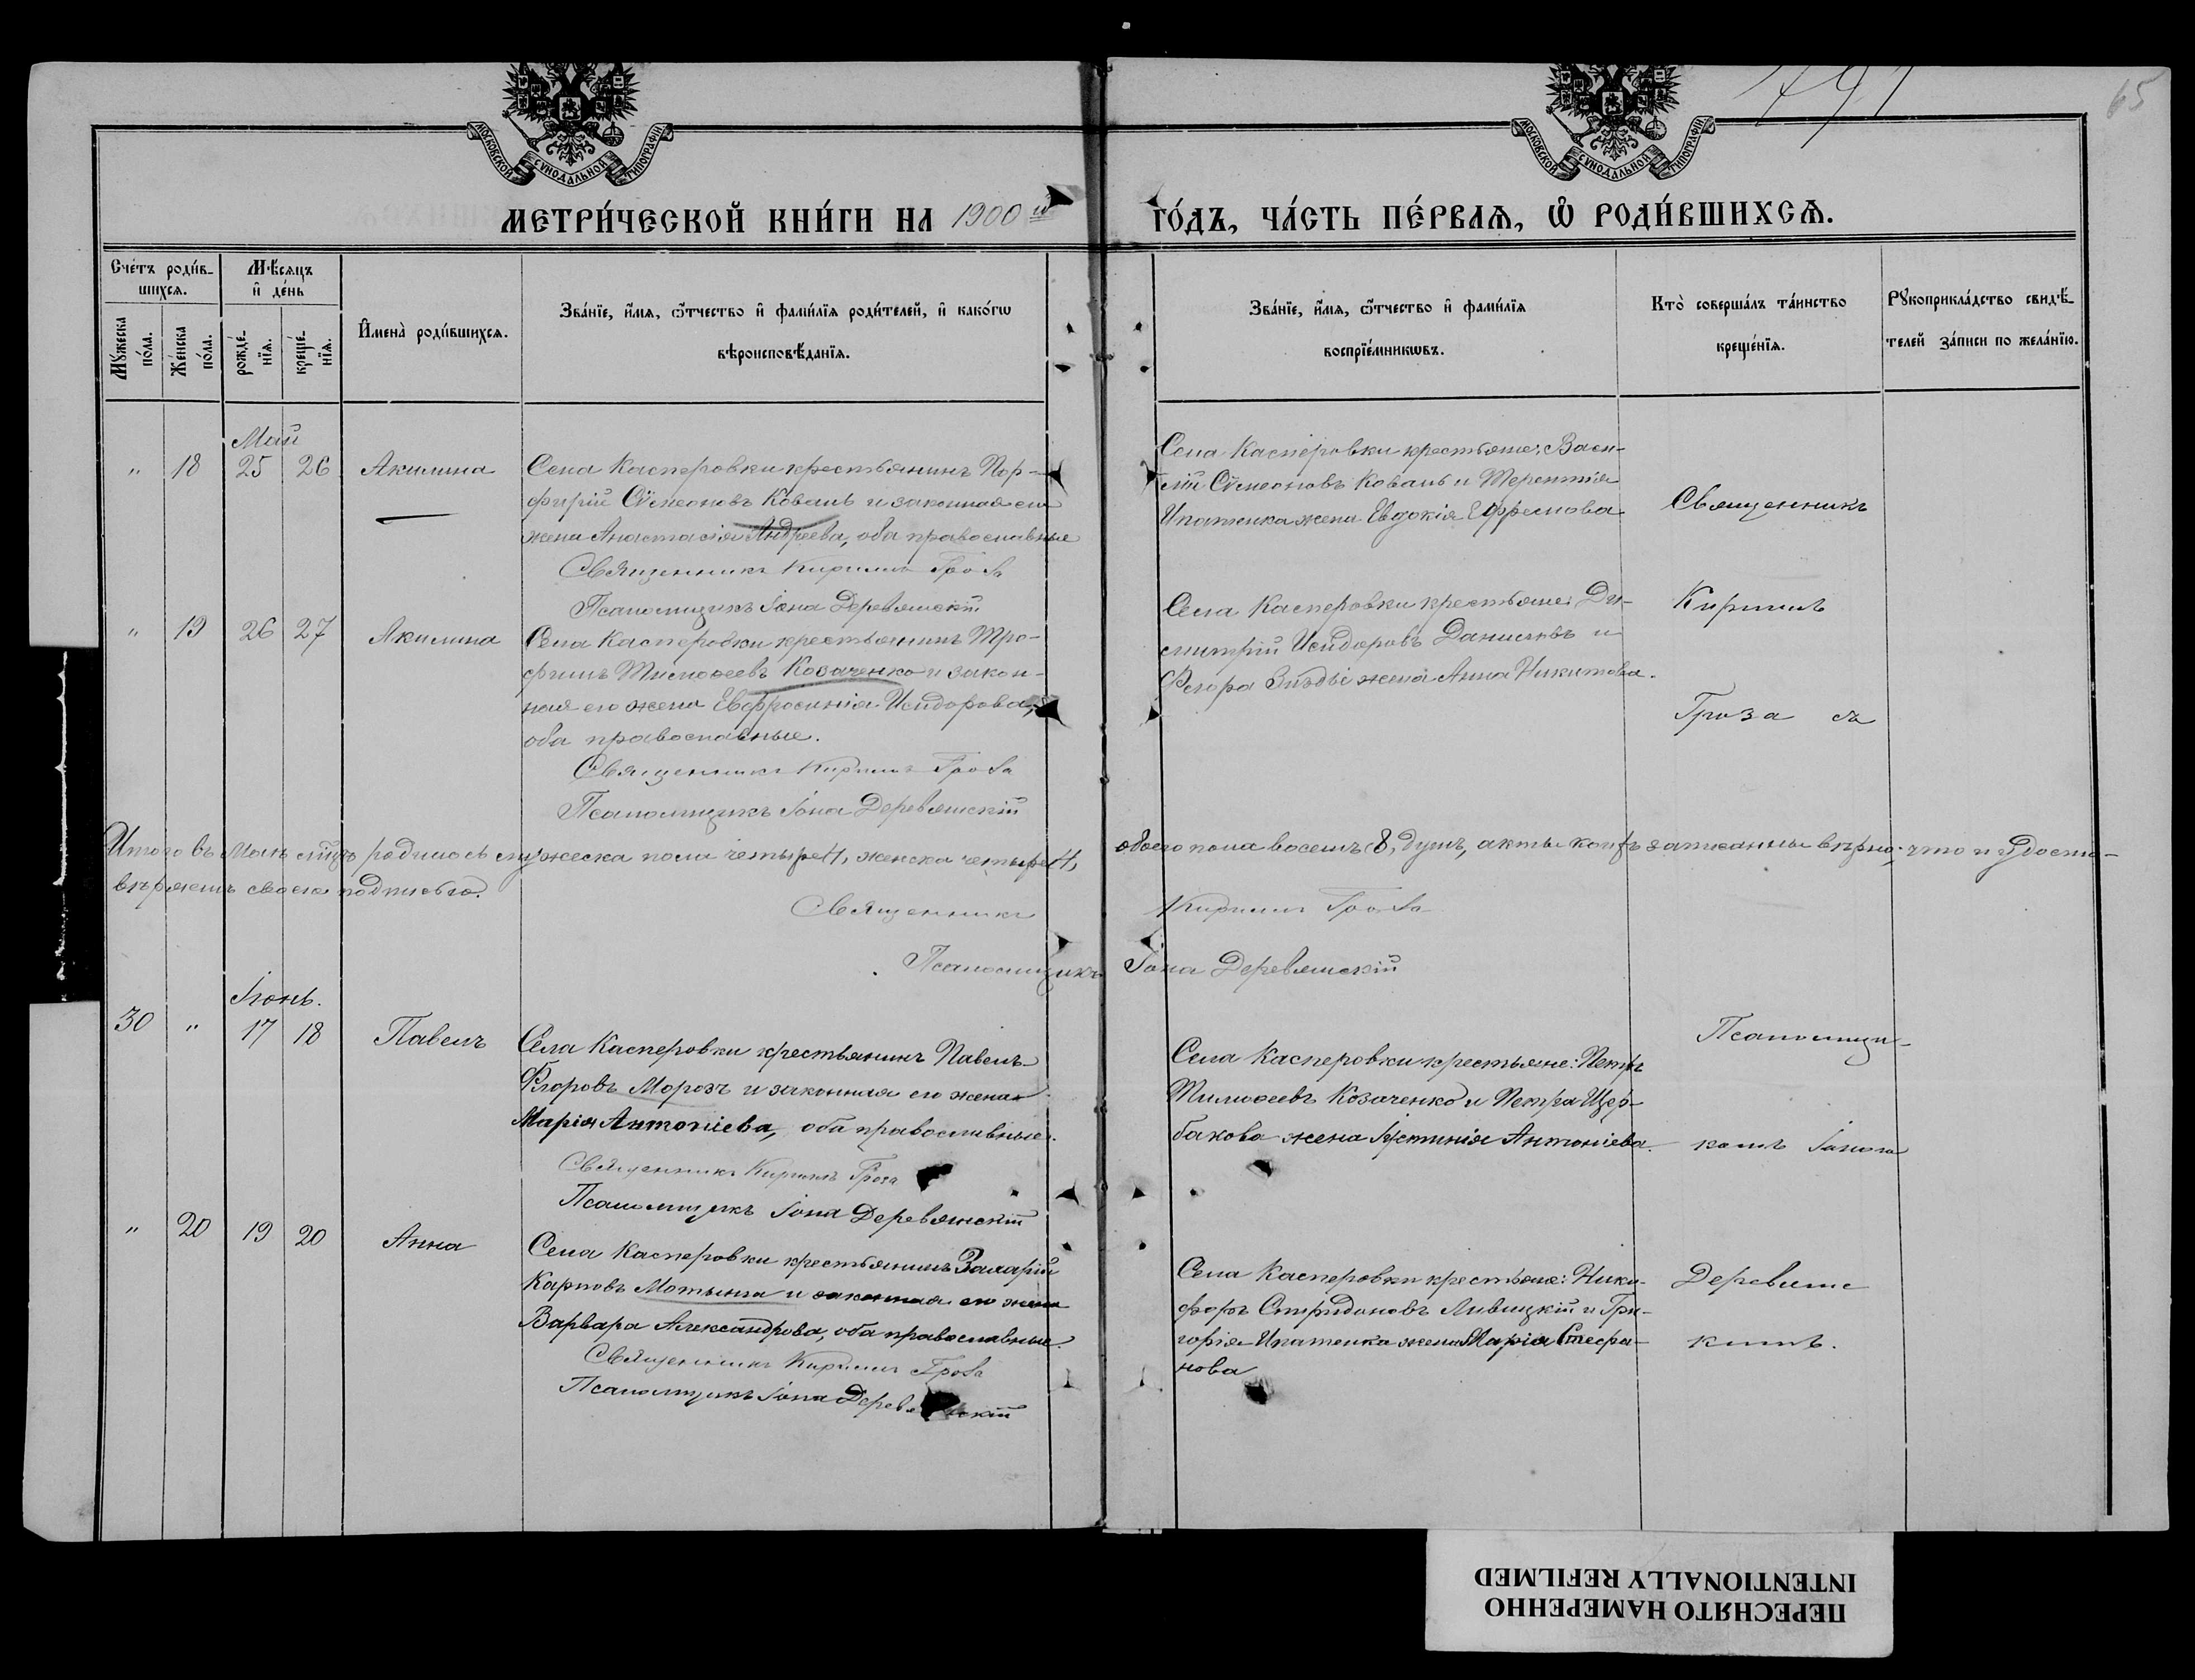 491
65
МОСКОВСКОЙ СѴНОДАЛЬНОЙ ТИПОГРАФІИ
МОСКОВСКОЙ СѴНОДАЛЬНОЙ ТИПОГРАФІИ
МЕТРИ́ЧЕСКОЙ КНИ́ГИ НА 1900й
ГО́ДЪ, ЧА́СТЬ ПЕ́РВАѦ, Ѡ҆ РОДИ́ВШИХСѦ.
Сче́тъ роди́в-
шихсѧ.
Мꙋ́жеска по́ла.
Же́нска по́ла.
Мѣ́сѧцъ
и҆ де́нь
рожде́-
нїѧ.
креще́-
нїѧ.
И҆мена̀ роди́вшихсѧ.
Зва́нїе, и҆́мѧ, ѻ҆́тчество и҆ фами́лїѧ роди́телей, и҆ како́гѡ
вѣроисповѣ́данїѧ.
Зва́нїе, и҆́мѧ, ѻ҆́тчество и҆ фами́лїѧ
воспрїе́мникѡвъ.
Кто̀ соверша́лъ та́инство
креще́нїѧ.
Рꙋкоприкла́дство свидѣ́-
телей за́писи по жела́нїю.
Май
" 18 25 26 Акилина
Села Касперовки крестьянинъ Пор-
фирій Сѷмеоновъ Коваль и законная его
жена Анастасія Андреева, оба православные
Священникъ Кириллъ Гроза
Псаломщикъ Іона Деревянскій
Села Касперовки крестьяне: Васи-
лій Сѷмеоновъ Коваль и Терентія
Ипатенка жена Евдокія Ефремова
Священникъ
" 19 26 27 Акилина
Села Касперовки крестьянинъ Тро-
фимъ Тимоѳеевъ Козаченко и закон-
ная его жена Евфросинія Исидорова,
оба православные.
Священникъ Кириллъ Гроза
Псаломщикъ Іона Деревянскій
Села Касперовки крестьяне: Ди-
митрій Исидоровъ Данилювъ и
Ѳеодора жена Анна Никитова.
Кирилл
Гроза съ
Итого въ Маѣ мѣцѣ родилось мужеска пола четыре 4, женска четыре 4, обоего пола восемъ 8, душъ, акты коихъ записаны вѣрно; что и удосто-
вѣряемъ своею подписью.
Священникъ Кириллъ Гроза
Псаломщикъ Іона Деревянскій
Іюнь.
30 " 17 18 Павелъ
Села Касперовки крестьянинъ Павелъ
Морозъ и законная его жена
Марія Антоніева, оба православные.
Священникъ Кириллъ Гроза
Псаломщикъ Іона Деревянскій
Села Касперовки крестьяне: Петръ
Тимоѳеевъ Козаченко и Петра Щер-
бакова жена Іустинія Антоніева.
Псаломщи-
комъ Іоною
" 20 19 20 Анна
Села Касперовки крестьянинъ Захарій
Карповъ Мотыга и законная его жена
Варвара Александрова, оба православные.
Священникъ Кириллъ Гроза
Псаломщикъ Іона Деревянскій
Села Касперовки крестьяне: Ники-
форъ Спиридоновъ Лавицкій и Гри-
горія Ипатенка жена Марія Стефа-
нова
Деревянс
кимъ.
ПЕРЕСНЯТО НАМЕРЕННО
INTENTIONALLY REFILMED